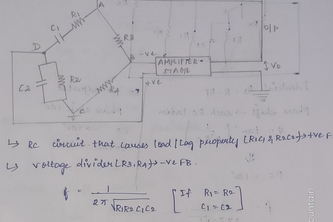 A
R1
C1
R3
D
-ve
AMPLIFIER
STAGE
O/P
V0
C2
R2
R4
C
+ve
↳ RC circuit that causes lead/lag property (R1C1 & R2C2) → +ve F
↳ voltage divider (R3, R4) → -ve FB.
f = 1 / 2π√R1R2C1C2 [If R1 = R2
C1 = C2]